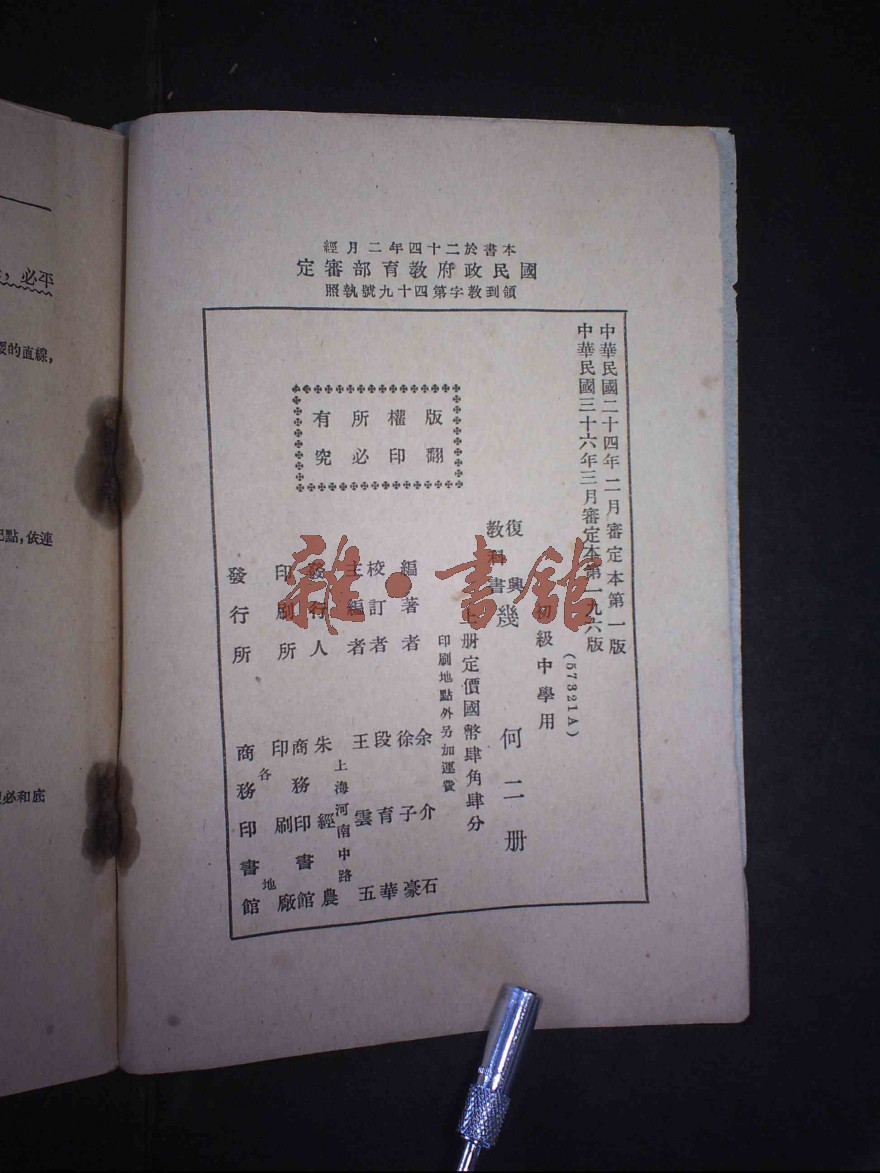 經月二年四十二於書本
定審部育教府政民國
照執號九十四第字教到領
中華民國二十四年二月審定本第一版
中華民國三十六年三月審定本第一九六版
(57321A)
初級中學用
復興
教科書
幾何二册
上册定價國幣肆角肆分
印刷地點外另加運費
版權所有
翻印必究
編著者 余介石
徐子豪
校訂者 段育華
主編者 王雲五
上海河南中路
發行人 朱經農
印刷所 商務印書館
印刷廠
發行所 各地
商務印書館
雜·書館
必平
的直線,
點,依連
必和底